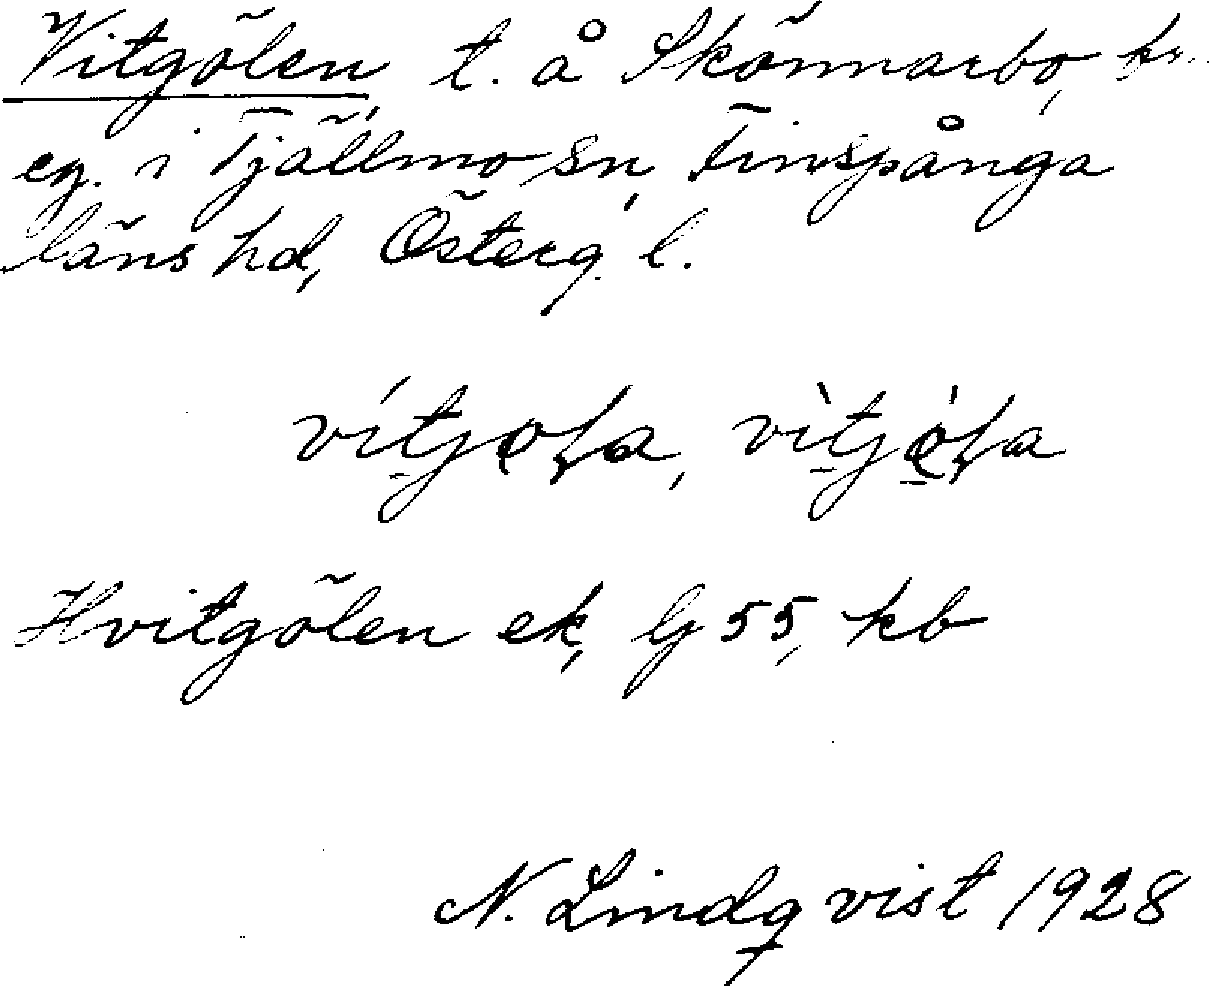 Vitgölen, t. å Skönnarbo, kr.
eg. i Tjällmo sn, Finspånga
läns hd, Österg. l.
Hvitgölen ek, Gj 55, kb
N. Lindqvist 1928